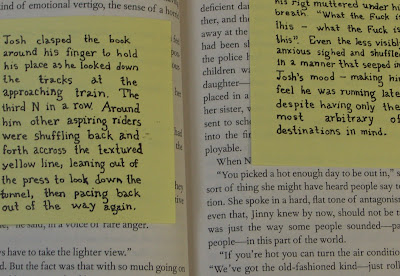 ind of emotional vertigo, the sense of a ho
Josh clasped the book
around his finger to hold
his place as he looked down
the tracks at the
approaching train. The
third N in a row. Around
him other aspiring riders
were shuffling back and
forth accross the textured
yellow line, leaning out of
the press to look down the
tunnel, then pacing back
out of the way again.
he said, in a voice of rare anger.
ys have to take the lighter view."
d. But the fact was that with so much going on
deficient da
ther, and the
away at the
had been sh
the police h
children wa
daughter—
placed in a
her sister, v
sent to scho
into the fir
ployable.
his Fist muttered under h
breath. "What the Fuck is
this – what the Fuck is
this". Even the less visibly
anxious sighed and shuffle
in a manner that seeped in
Josh's mood – making hi
feel he was running late
despite having only the
most arbitrary of
destinations in mind.
When N
"You picked a hot enough day to be out in,"
sort of thing she might have heard people say to
tion. She spoke in a hard, flat tone of antagonism
even that, Jinny knew by now, should not be t
was just the way some people sounded—pa
people—in this part of the world.
"If you're hot you can turn the air condition
"We've got the old-fashioned kind—just roll